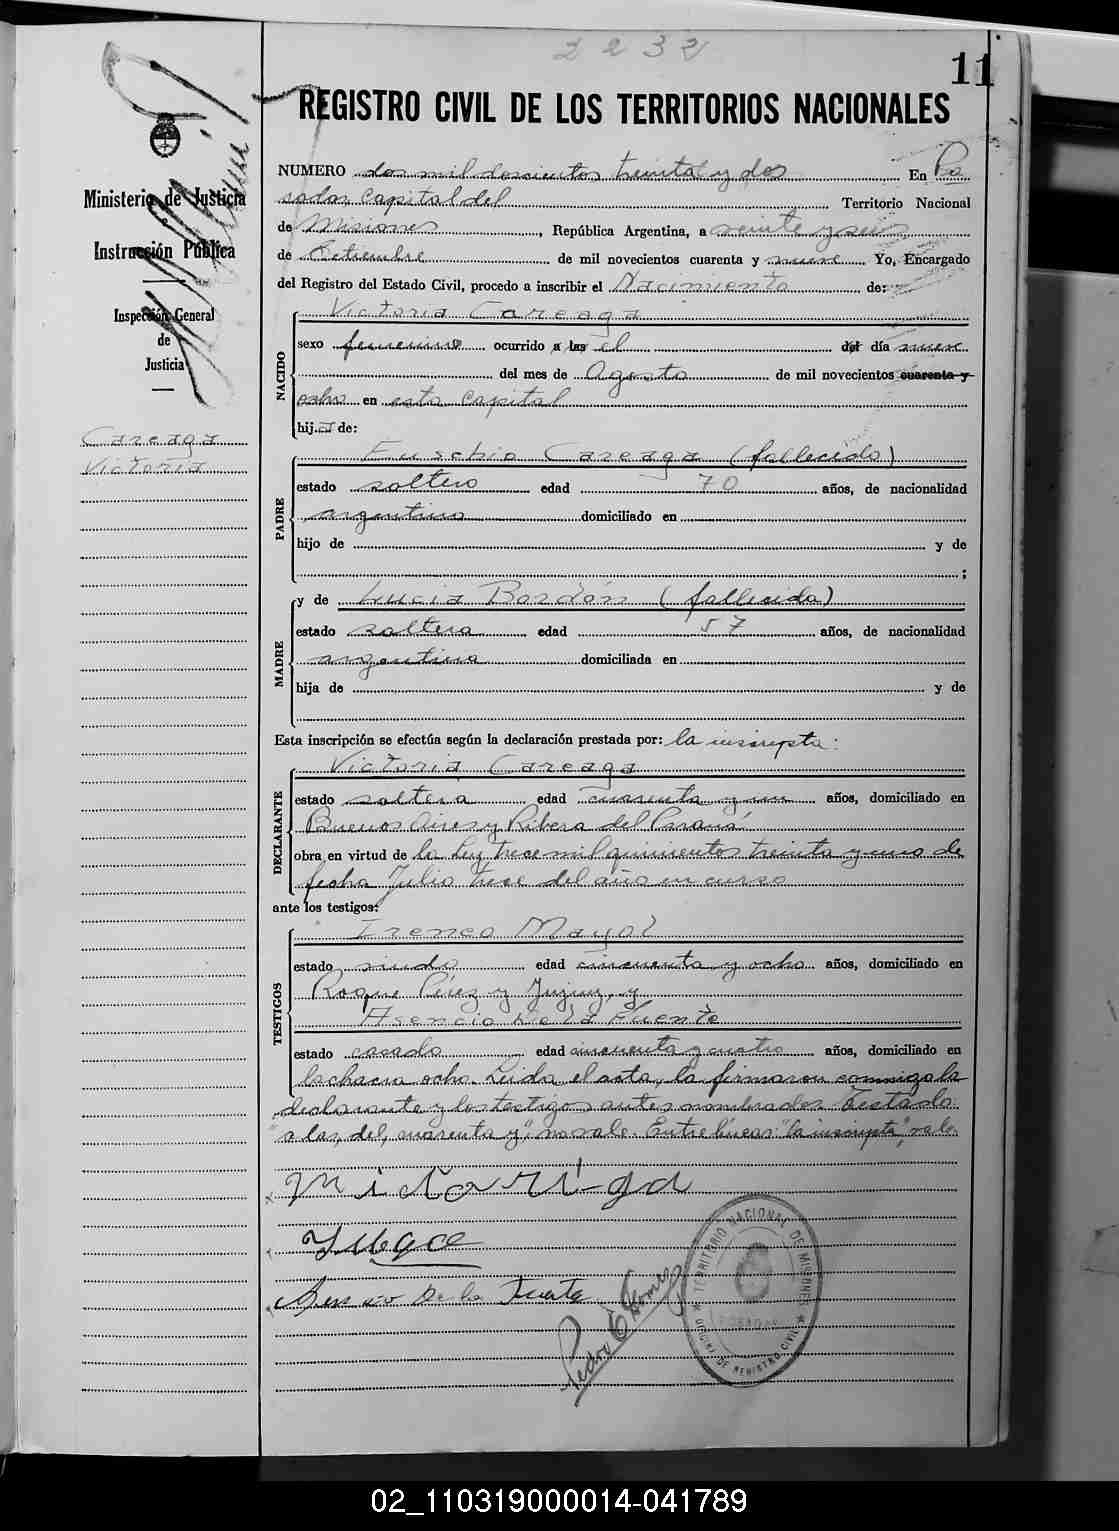 2232
11
REGISTRO CIVIL DE LOS TERRITORIOS NACIONALES
Ministerio de Justicia
Instrucción Pública
Inspección General
de
Justicia
Careaga
Victoria
NUMERO dos mil doscientos treinta y dos En Po
sadas capital del Territorio Nacional
de Misiones, República Argentina, a veinte y seis
de de mil novecientos cuarenta y nueve Yo, Encargado
del Registro del Estado Civil, procedo a inscribir el Nacimiento de:
NACIDO
Victoria Careaga
sexo femenino ocurrido a las el del día nueve
del mes de Agosto de mil novecientos cuarenta y
ocho en esta capital
hija de:
PADRE
Eusebio Careaga (fallecido)
estado soltero edad 70 años, de nacionalidad
argentino domiciliado en
hijo de y de
;
MADRE
y de Lucia Bordón (fallecida)
estado soltera edad 57 años, de nacionalidad
argentina domiciliada en
hija de y de
Esta inscripción se efectúa según la declaración prestada por: la inscripta:
DECLARANTE
Victoria Careaga
estado soltera edad cuarenta y un años, domiciliado en
Buenos Aires y Ribera del Paraná
obra en virtud de la Ley trece mil quinientos treinta y uno de
fecha Julio trece del año en curso
ante los testigos:
TESTIGOS
Ireneo Mayol
estado viudo edad cincuenta y ocho años, domiciliado en
Roque Pérez y Jujuy, y
Asencio De la Fuente
estado casado edad cincuenta y cuatro años, domiciliado en
la chacra ocho. Leida el acta, la firmaron conmigo la
declarante y los testigos antes nombrados. Testado:
"a las, del, cuarenta y", no vale. Entre lineas: "la inscripta", vale.
De la Fuente
Pedro E Gomez
TERRITORIO NACIONAL DE MISIONES
DE REGISTRO CIVIL
02_110319000014-041789